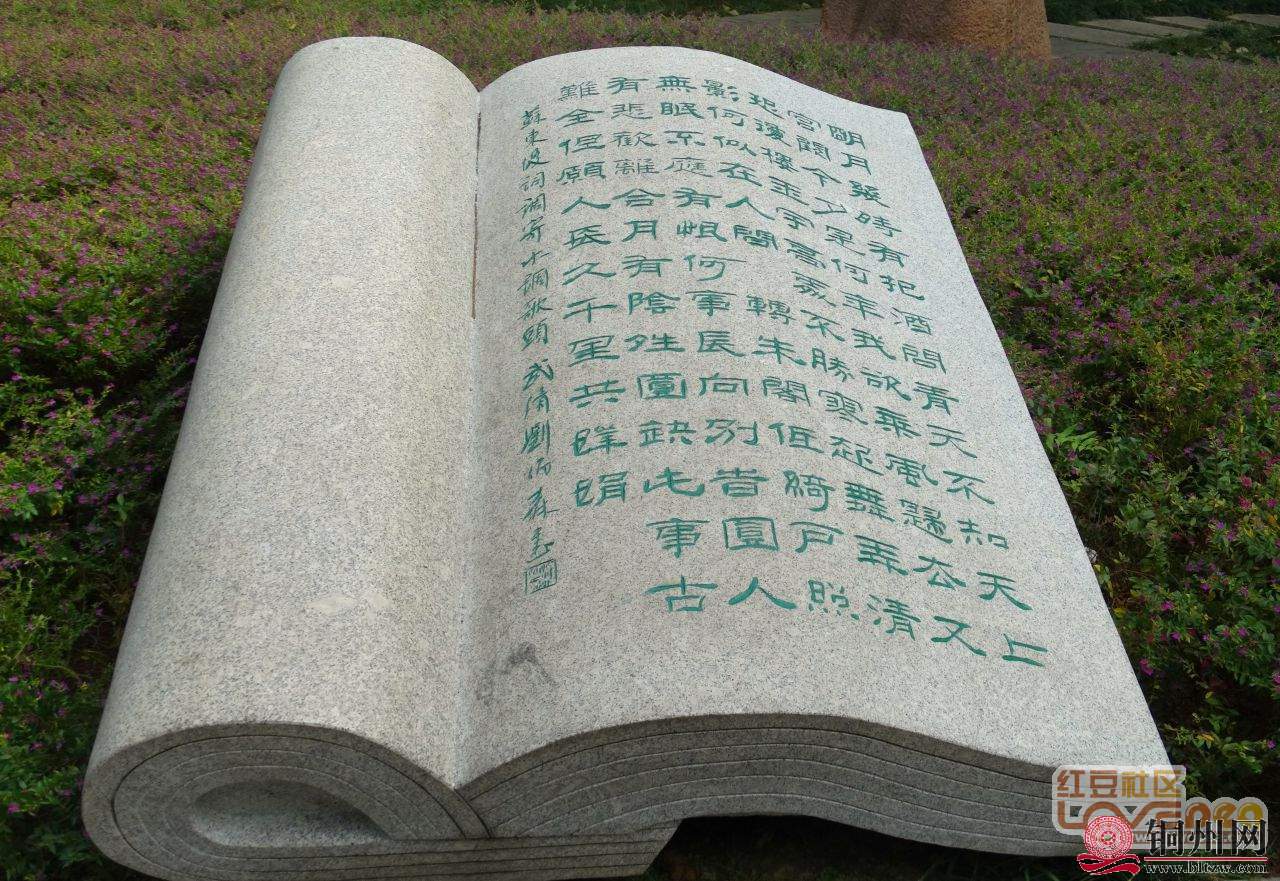 明月幾時有把酒問青天不知天上
宮闕今夕是何年我欲乘風歸去又
恐瓊樓玉宇高處不勝寒起舞弄清
影何似在人間 轉朱閣低綺戶照
無眠不應有恨何事長向別旹圓人
有悲歡離合月有陰晴圓缺此事古
難全但願人長久千里共嬋娟
蘇東坡詞調寄水調歌頭 武清劉炳森書
红豆社区
铜州网
www.bltzw.com